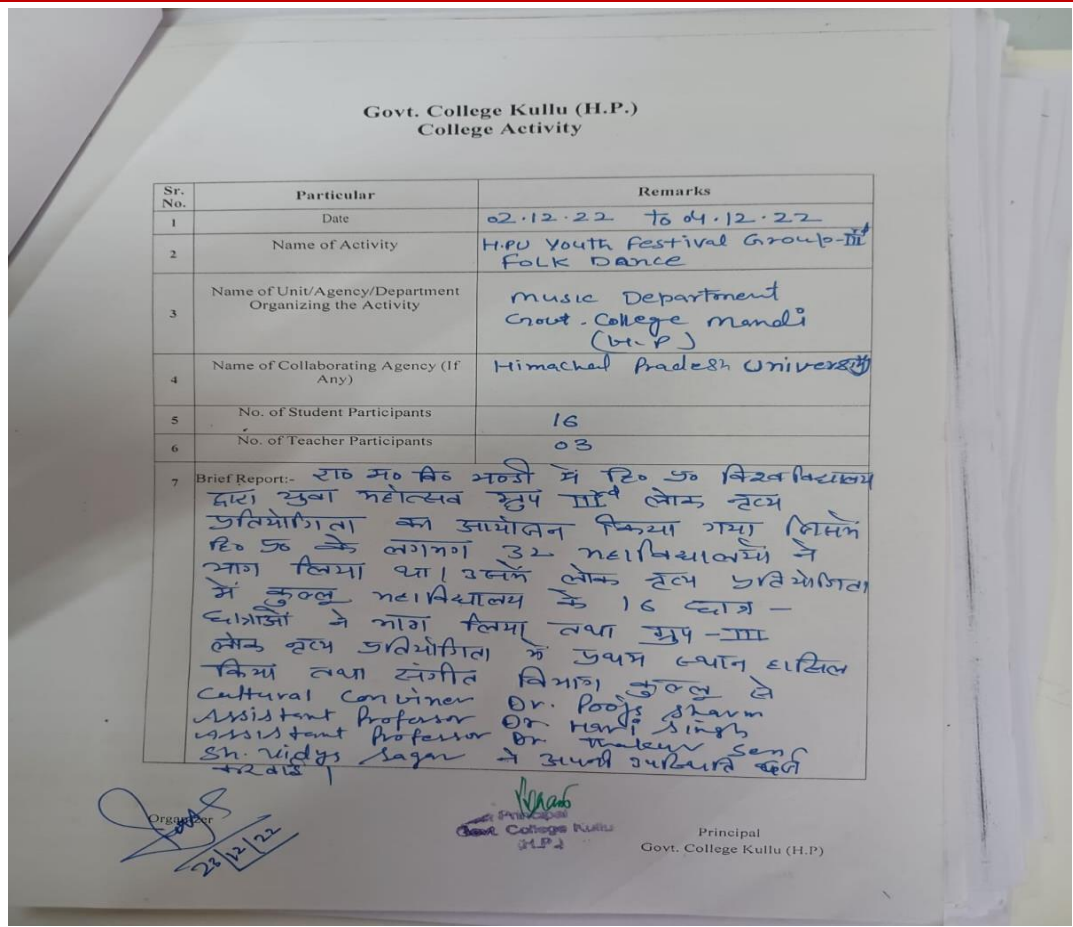 Govt. College Kullu (H.P.)
College Activity
Sr. No. Particular Remarks
1 Date 02.12.22 to 04.12.22
2 Name of Activity H.PU Youth Festival Group-IIIrd
FOLK DANCE
3 Name of Unit/Agency/Department
Organizing the Activity
Music Department
Govt. College Mandi
(H.P)
4 Name of Collaborating Agency (If
Any)
Himachal Pradesh University
5 No. of Student Participants 16
6 No. of Teacher Participants 03
7 Brief Report:- रा० म० वि० मण्डी में हि० प्र० विश्वविद्यालय
द्वारा युवा महोत्सव ग्रुप IIIrd लोक नृत्य
प्रतियोगिता का आयोजन किया गया जिसमें
हि० प्र० के लगभग 32 महाविद्यालयों ने
भाग लिया था। उसमें लोक नृत्य प्रतियोगिता
में कुल्लू महाविद्यालय के 16 छात्र -
छात्राओं ने भाग लिया तथा ग्रुप -III
लोक नृत्य प्रतियोगिता में प्रथम स्थान हासिल
किया तथा संगीत विभाग कुल्लू से
Cultural Conviner Dr. Pooja Sharm
Assistant Professor Dr Singh
Assistant Professor Dr Thakur Sen
Sh. Vidya Sagar ने अपनी उपस्थिति दर्ज
करवाई।
Organizer
23/12/22
Principal
Govt. College Kullu
(H.P.)
Principal
Govt. College Kullu (H.P)